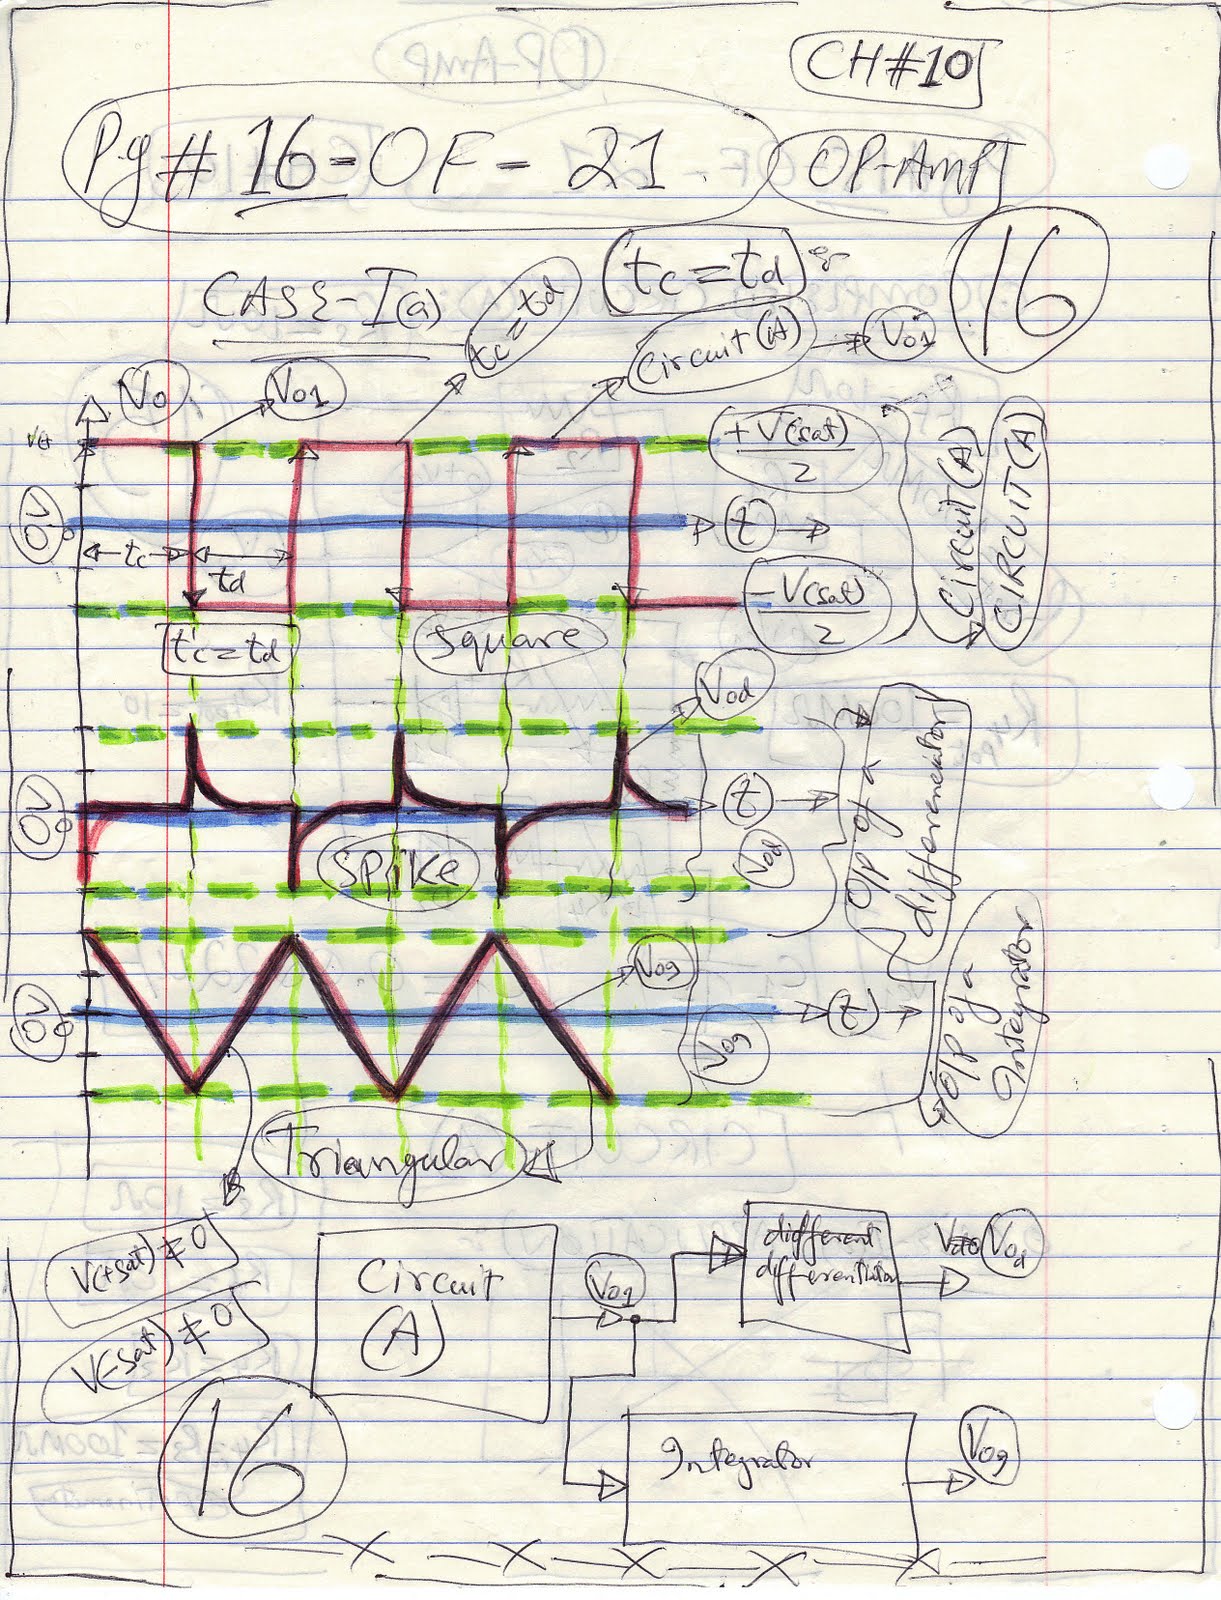 CH#10
Pg# 16-OF-21
OP-AMP
16
CASE-I(a)
tc=td
(tc=td)
Circuit(A)
Vo1
Vo
Vo1
+V(sat)
2
Circuit(A)
CIRCUIT(A)
0V
t
tc
td
-V(sat)
2
tc=td
Square
Vod
0V
t
Vod
O/P of a
differenciator
Spike
Vog
0V
t
Vog
O/P of a
Integrator
Triangular
V(+sat) ≠ 0
V(-sat) ≠ 0
Circuit
(A)
Vo1
different
differentiator
Vod
16
Integrator
Vog